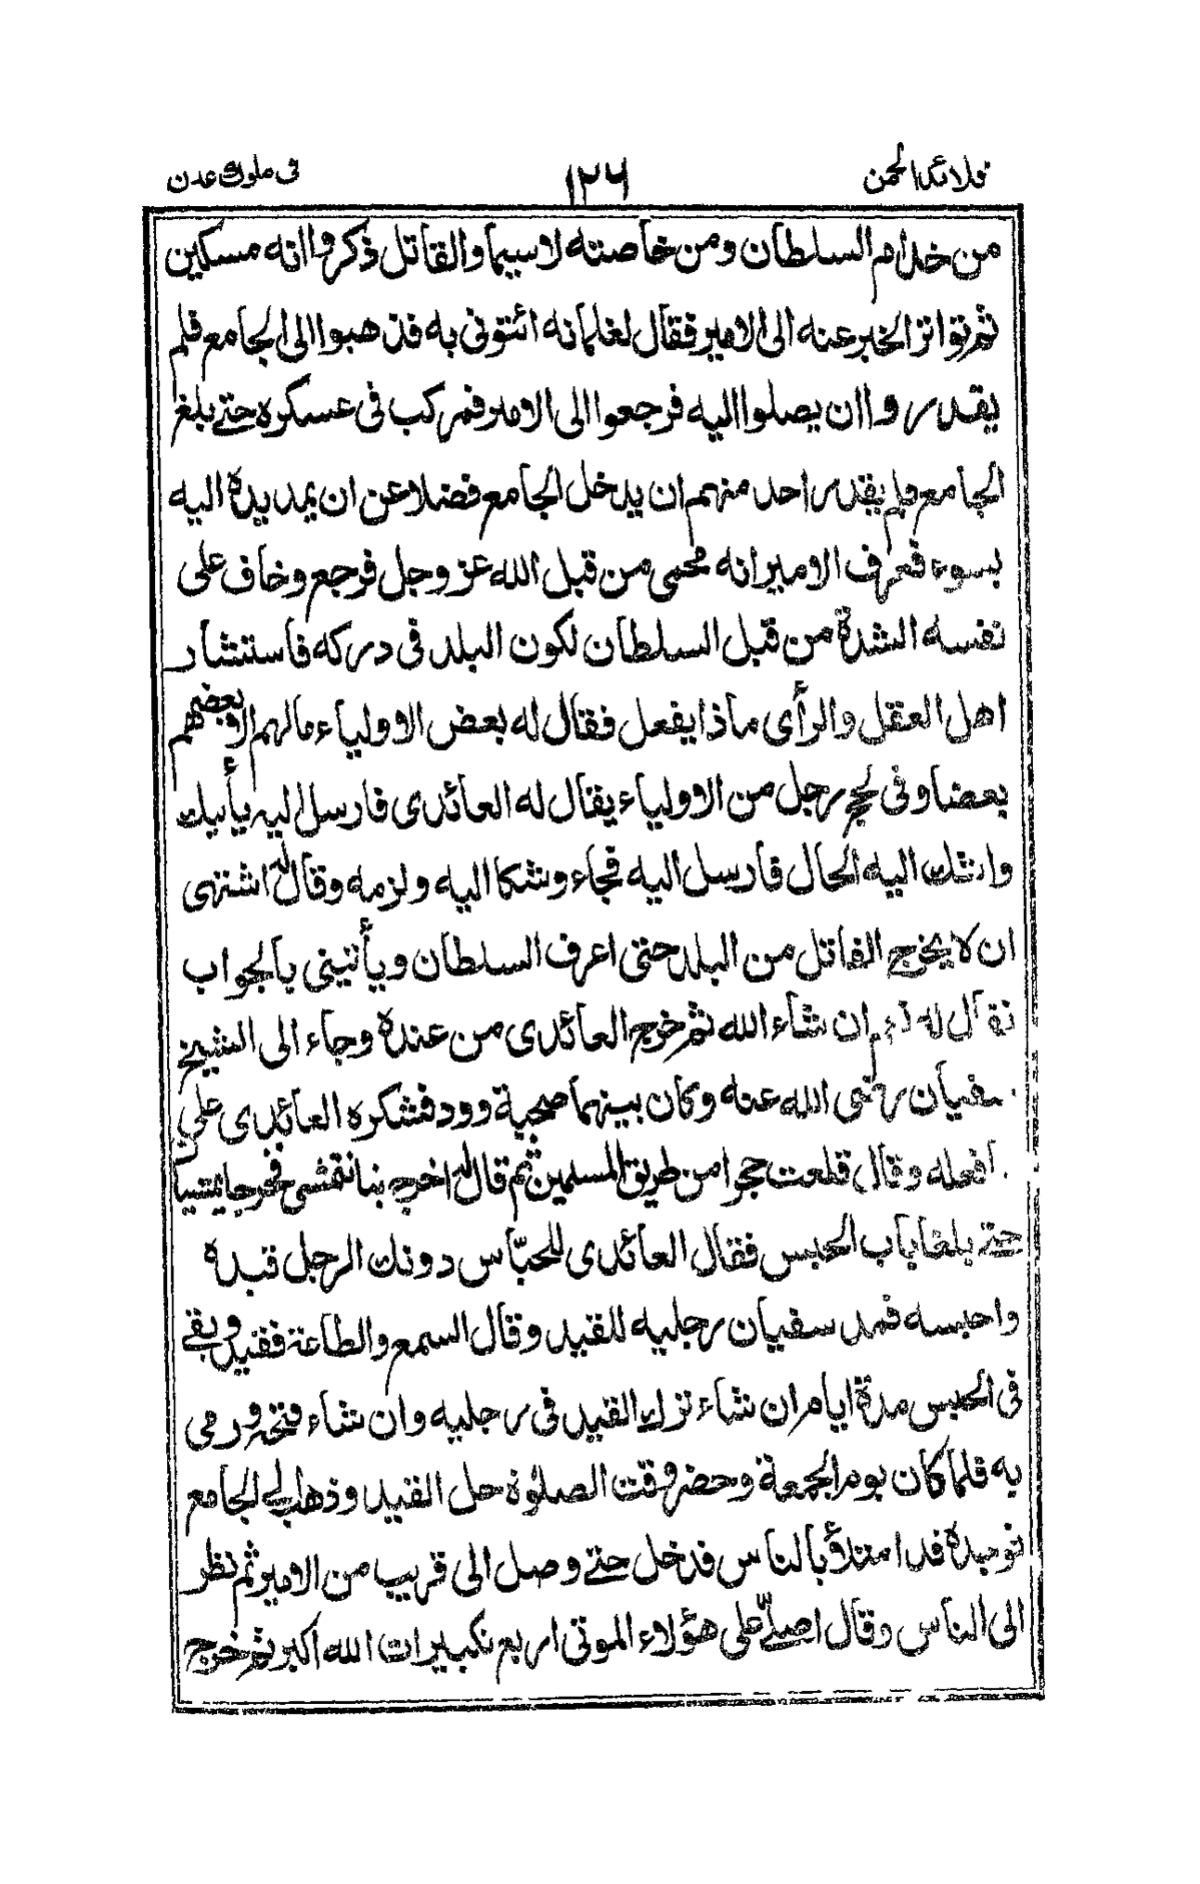 قلائد الجمن
١٢٦
فى ملوك عدن
من خدام السلطان ومن خاصته لا سيما والقاتل ذكروا انه مسكين
ثم تواتر الخبر عنه الى الامير فقال لغلمانه ائتونى به فذهبوا الى الجامع فلم
يقدروا ان يصلوا اليه فرجعوا الى الامير فمركب فى عسكره حتى بلغ
الجامع فلم يقدر احد منهم ان يدخل الجامع فضلا عن ان يمد يده اليه
بسوء فعرف الامير انه محمى من قبل الله عز وجل فرجع وخاف على
نفسه الشدة من قبل السلطان لكون البلد فى دركه فاستشار
اهل العقل والرأى ماذا يفعل فقال له بعض الاولياء مالهم الا بعضهم
بعضا وفى لحج رجل من الاولياء يقال له العائدى فارسل اليه يأتيك
واشك اليه الحال فارسل اليه فجاء وشكا اليه ولزمه وقال له اشتهى
ان لا يخرج القاتل من البلد حتى اعرف السلطان ويأتينى بالجواب
فقال له نعم ان شاء الله ثم خرج العائدى من عنده وجاء الى الشيخ
سفيان رضى الله عنه وكان بينهما صحبة وود فشكره العائدى على
ما فعله وقال قلعت حجرا من طريق المسلمين ثم قال له اخرج بنا نتمشى فخرجا يمشيان
حتى بلغا باب الحبس فقال العائدى للحبّاس دونك الرجل قيده
واحبسه فمد سفيان رجليه للقيد وقال السمع والطاعة فقيد وبقى
فى الحبس مدة ايام ان شاء نزك القيد فى رجليه وان شاء فتحه ورمى
به فلما كان يوم الجمعة وحضر وقت الصلوة حل القيد وذهب الى الجامع
فوجده قد امتلأ بالناس فدخل حتى وصل الى قريب من الامير ثم نظر
الى الناس وقال اصلّى على هؤلاء الموتى اربع تكبيرات الله اكبر ثم خرج